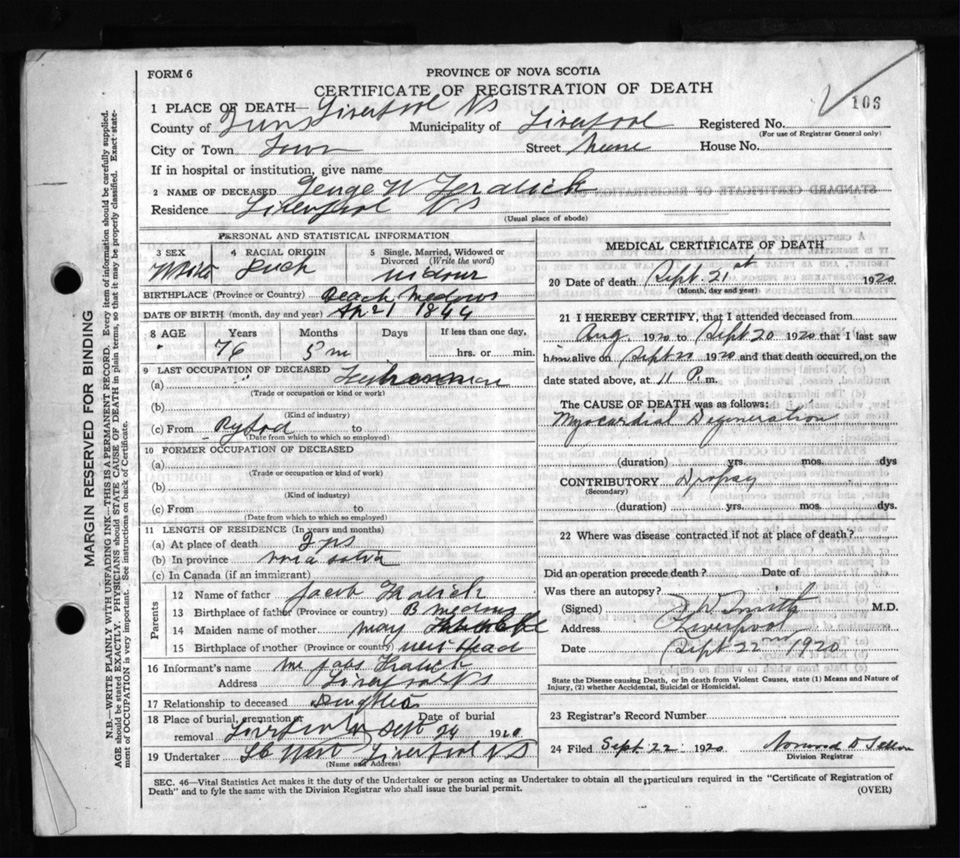 FORM 6
PROVINCE OF NOVA SCOTIA
CERTIFICATE OF REGISTRATION OF DEATH
106
1 PLACE OF DEATH— Liverpool NS
County of Municipality of Liverpool Registered No.
(For use of Registrar General only)
City or Town Town Street House No.
If in hospital or institution, give name
2 NAME OF DECEASED George W
Residence Liverpool NS
(Usual place of abode)
PERSONAL AND STATISTICAL INFORMATION
3 SEX 4 RACIAL ORIGIN 5 Single, Married, Widowed or Divorced (Write the word)
White
BIRTHPLACE (Province or Country) Beach Medows
DATE OF BIRTH (month, day and year) Apr 21 1844
8 AGE Years Months Days If less than one day,
76 5 m hrs. or min.
9 LAST OCCUPATION OF DECEASED
(a) Fisherman
(Trade or occupation or kind or work)
(b)
(Kind of industry)
(c) From to
(Date from which to which so employed)
10 FORMER OCCUPATION OF DECEASED
(a)
(Trade or occupation or kind of work)
(b)
(Kind of industry)
(c) From to
(Date from which to which so employed)
11 LENGTH OF RESIDENCE (In years and months)
(a) At place of death
(b) In province nova
(c) In Canada (if an immigrant)
Parents
12 Name of father Jacob
13 Birthplace of father (Province or country) B Medows
14 Maiden name of mother may
15 Birthplace of mother (Province or country) west Head
16 Informant's name
Address Liverpool NS
17 Relationship to deceased
18 Place of burial, cremation or removal Date of burial
Liverpool Sept 24 1920
19 Undertaker West Liverpool NS
(Name and Address)
MEDICAL CERTIFICATE OF DEATH
20 Date of death Sept. 21st 1920
(Month, day and year)
21 I HEREBY CERTIFY, that I attended deceased from
Aug. 1920 to Sept 20 1920 that I last saw
him alive on Sept 1920 and that death occurred, on the
date stated above, at 11 P.m.
The CAUSE OF DEATH was as follows:
Myocardial Degeneration
(duration) yrs. mos. dys
CONTRIBUTORY Dropsy
(Secondary)
(duration) yrs. mos. dys
22 Where was disease contracted if not at place of death?
Did an operation precede death? Date of
Was there an autopsy?
(Signed) Smith M.D.
Address Liverpool
Date Sept 22nd 1920
State the Disease causing Death, or in death from Violent Causes, state (1) Means and Nature of
Injury, (2) whether Accidental, Suicidal or Homicidal.
23 Registrar's Record Number
24 Filed Sept. 22. 1920
Division Registrar
SEC. 46—Vital Statistics Act makes it the duty of the Undertaker or person acting as Undertaker to obtain all the particulars required in the "Certificate of Registration of
Death" and to fyle the same with the Division Registrar who shall issue the burial permit.
(OVER)
MARGIN RESERVED FOR BINDING
N.B.—WRITE PLAINLY WITH UNFADING INK—THIS IS A PERMANENT RECORD. Every item of information should be carefully supplied.
AGE should be stated EXACTLY. PHYSICIANS should STATE CAUSE OF DEATH in plain terms, so that it may be properly classified. Exact state-
ment of OCCUPATION is very important. See instructions on back of Certificate.